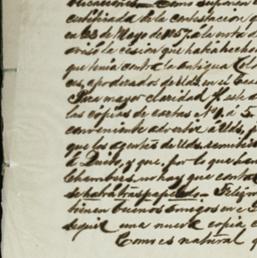 ificaciones — Como suponen
certificada de la contestacion, q
en 23 de Mayo de 1857 a la nota d
avisó la cesion que había hecho
que tenía contra la antigua Colo
as, apoderados de Uds. en el Ecua
Para mayor claridad y este d
las copias de cartas Nº 1, á 5.
conveniente advertir á Uds,
que los agentes de Uds. remitier
á Quito, y que, por lo que han
Chambers, no hay que contar
se habrá traspapelado. — Feliz
tienen buenos amigos en
seguir una nueva copia c
Como es natural q